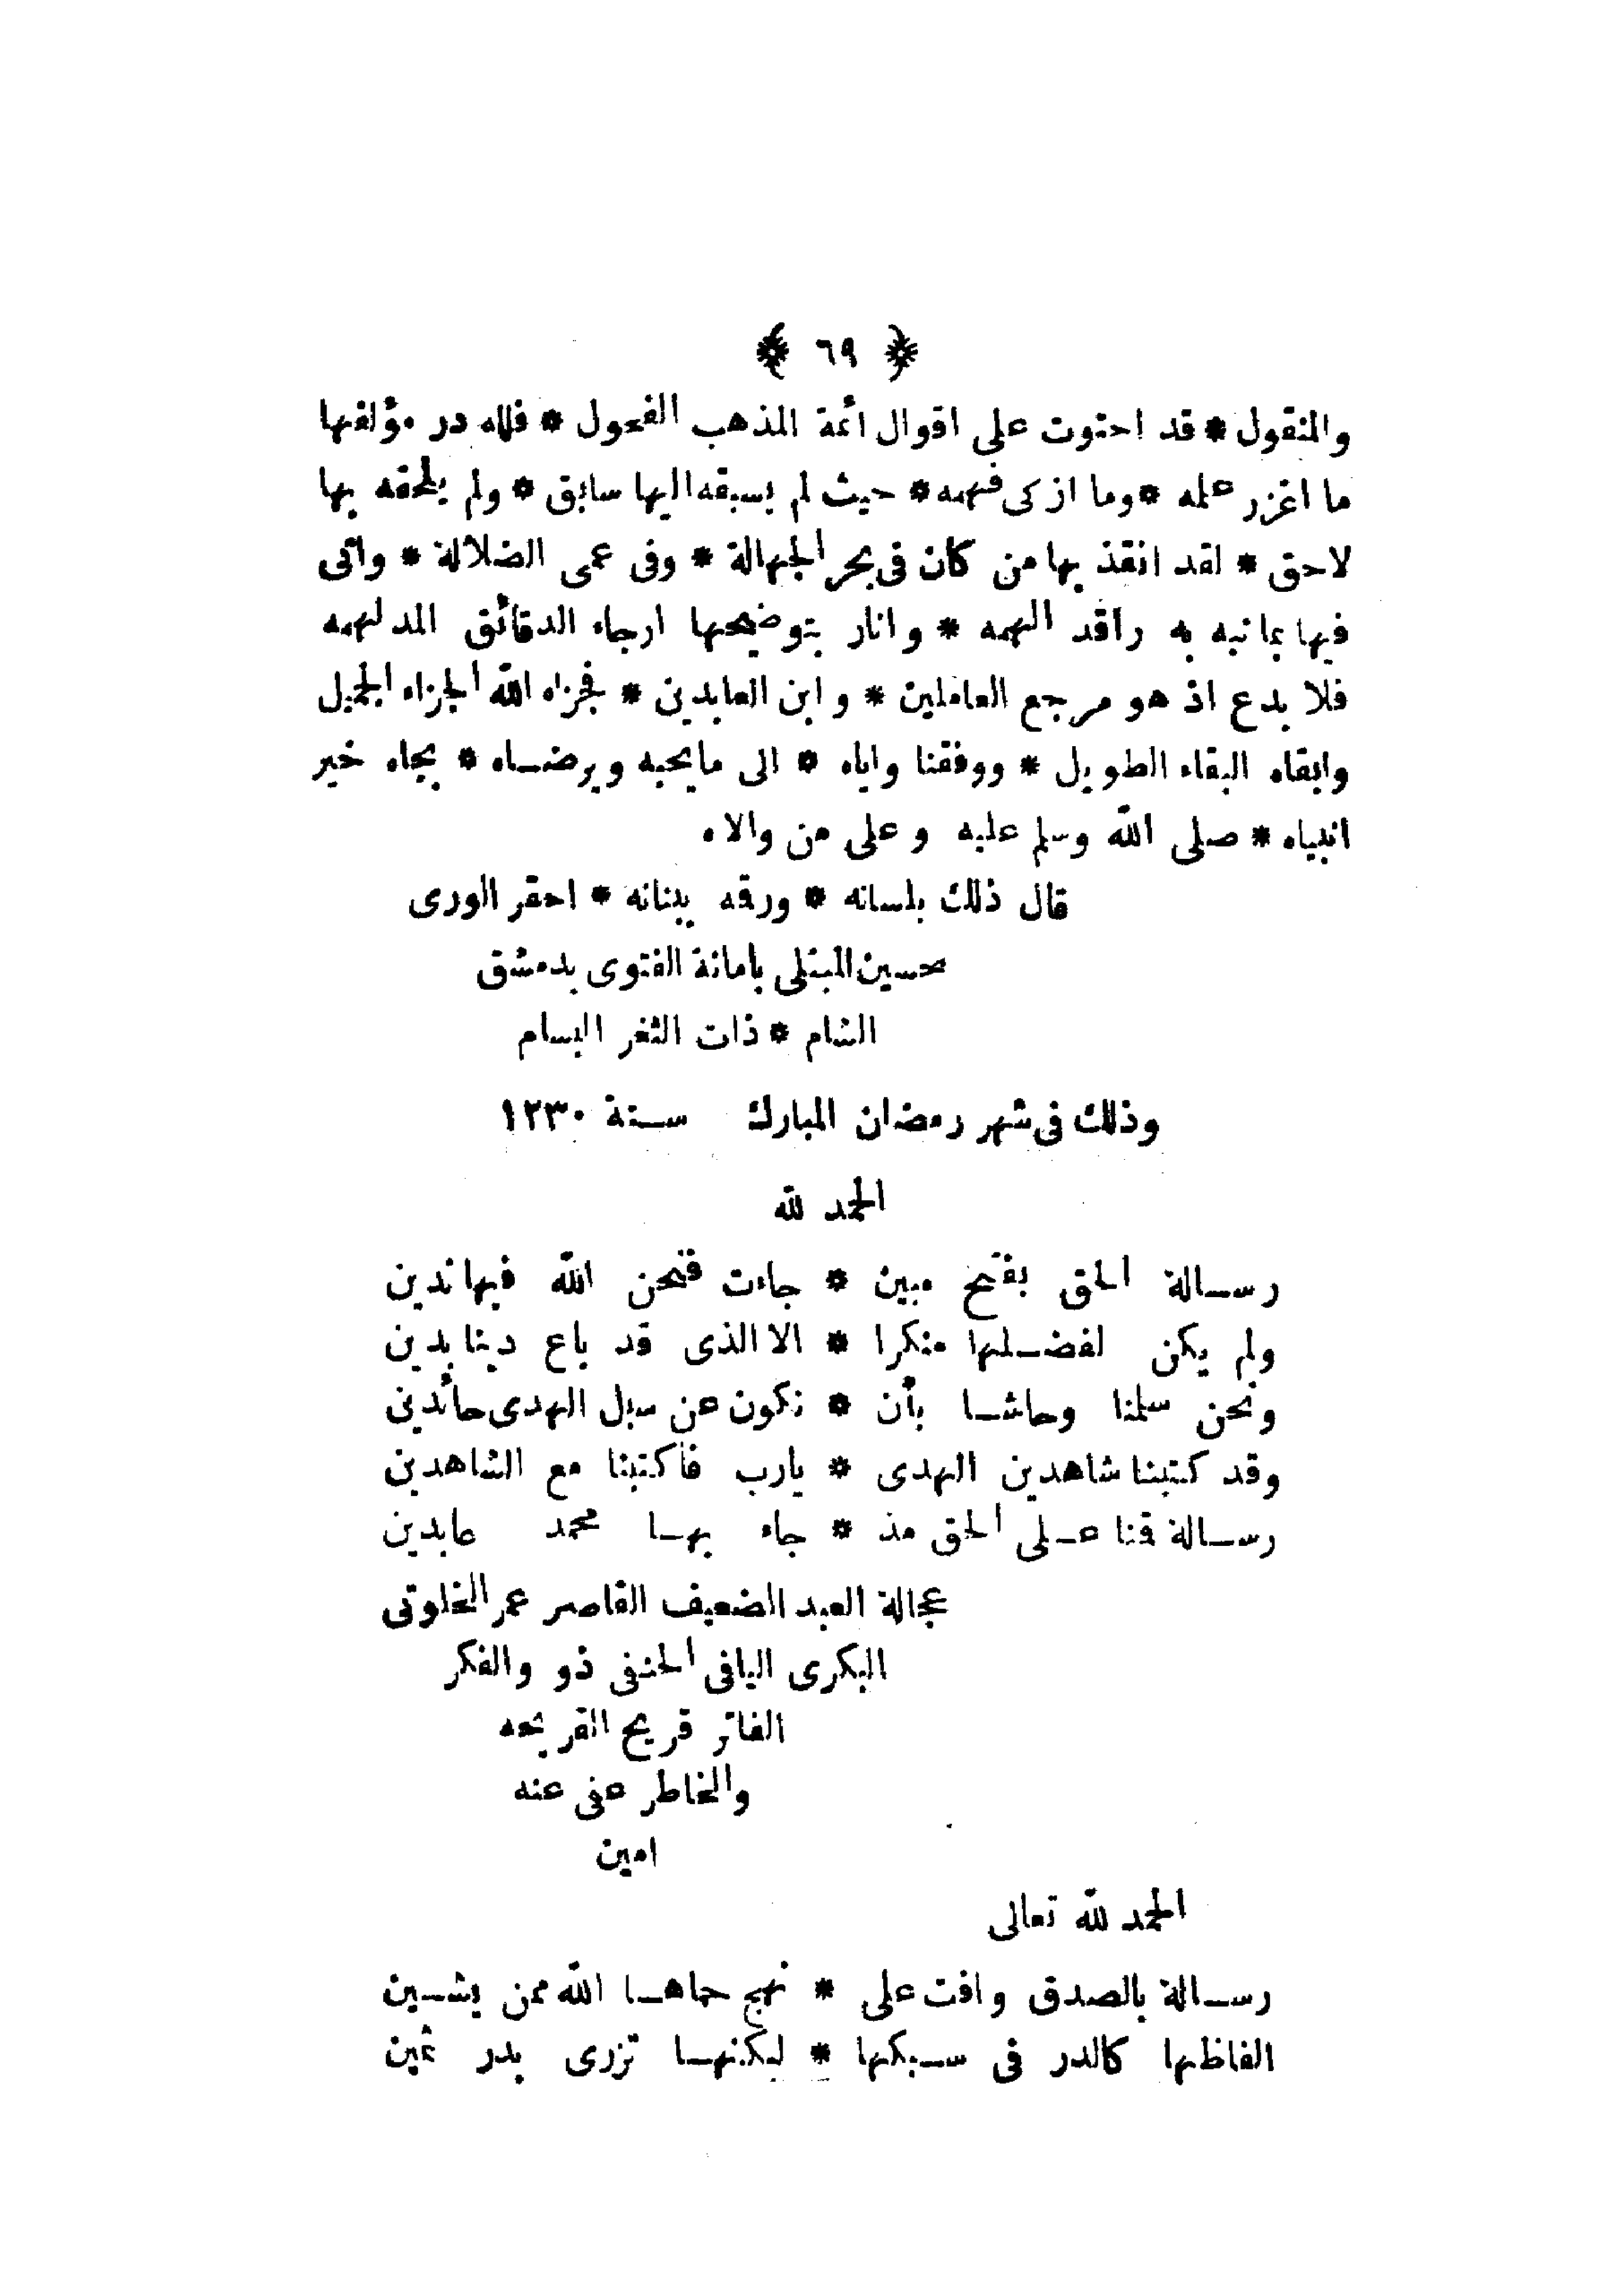 ﴿ ٦٩ ﴾
والمنقول * قد احتوت على اقوال ائمة المذهب الفحول * فلله در مؤلفها
ما اغزر علمه * وما ازكى فهمه * حيث لم يسبقه اليها سابق * ولم يلحقه بها
لاحق * لقد انقذ بها من كان فى بحر الجهالة * وفى عمى الضلالة * واتى
فيها بما نبه به راقد الهمه * وانار بتوضيحها ارجاء الدقائق المدلهمه
فلا بدع اذ هو مرجع العاملين * وابن العابدين * فجزاه الله الجزاء الجميل
وابقاه البقاء الطويل * ووفقنا واياه * الى مايحبه ويرضاه * بجاه خير
انبياه * صلى الله وسلم عليه وعلى من والاه
قال ذلك بلسانه * ورقه ببنانه * احقر الورى
حسين المبتلى بامانة الفتوى بدمشق
الشام * ذات الثغر البسام
وذلك فى شهر رمضان المبارك سنة ١٢٣٠
الحمد لله
رسالة الحق بفتح مبين * جاءت فنحن الله فيها ندين
ولم يكن لفضلها منكرا * الا الذى قد باع دينا بدين
ونحن سلمنا وحاشا بأن * نكون عن سبل الهدى حائدين
وقد كتبنا شاهدين الهدى * يارب فاكتبنا مع الشاهدين
رسالة قنا على الحق مذ * جاء بها محمد عابدين
عجالة العبد الضعيف القاصر عمر الخلوتى
البكرى اليافى الحنفى ذو والفكر
الفاتر قريح القريحه
والخاطر عفى عنه
امين
الحمد لله تعالى
رسالة بالصدق وافت على * نهج حماها الله ممن يشين
الفاظها كالدر فى سبكها * لكنها تزرى بدر ثمين